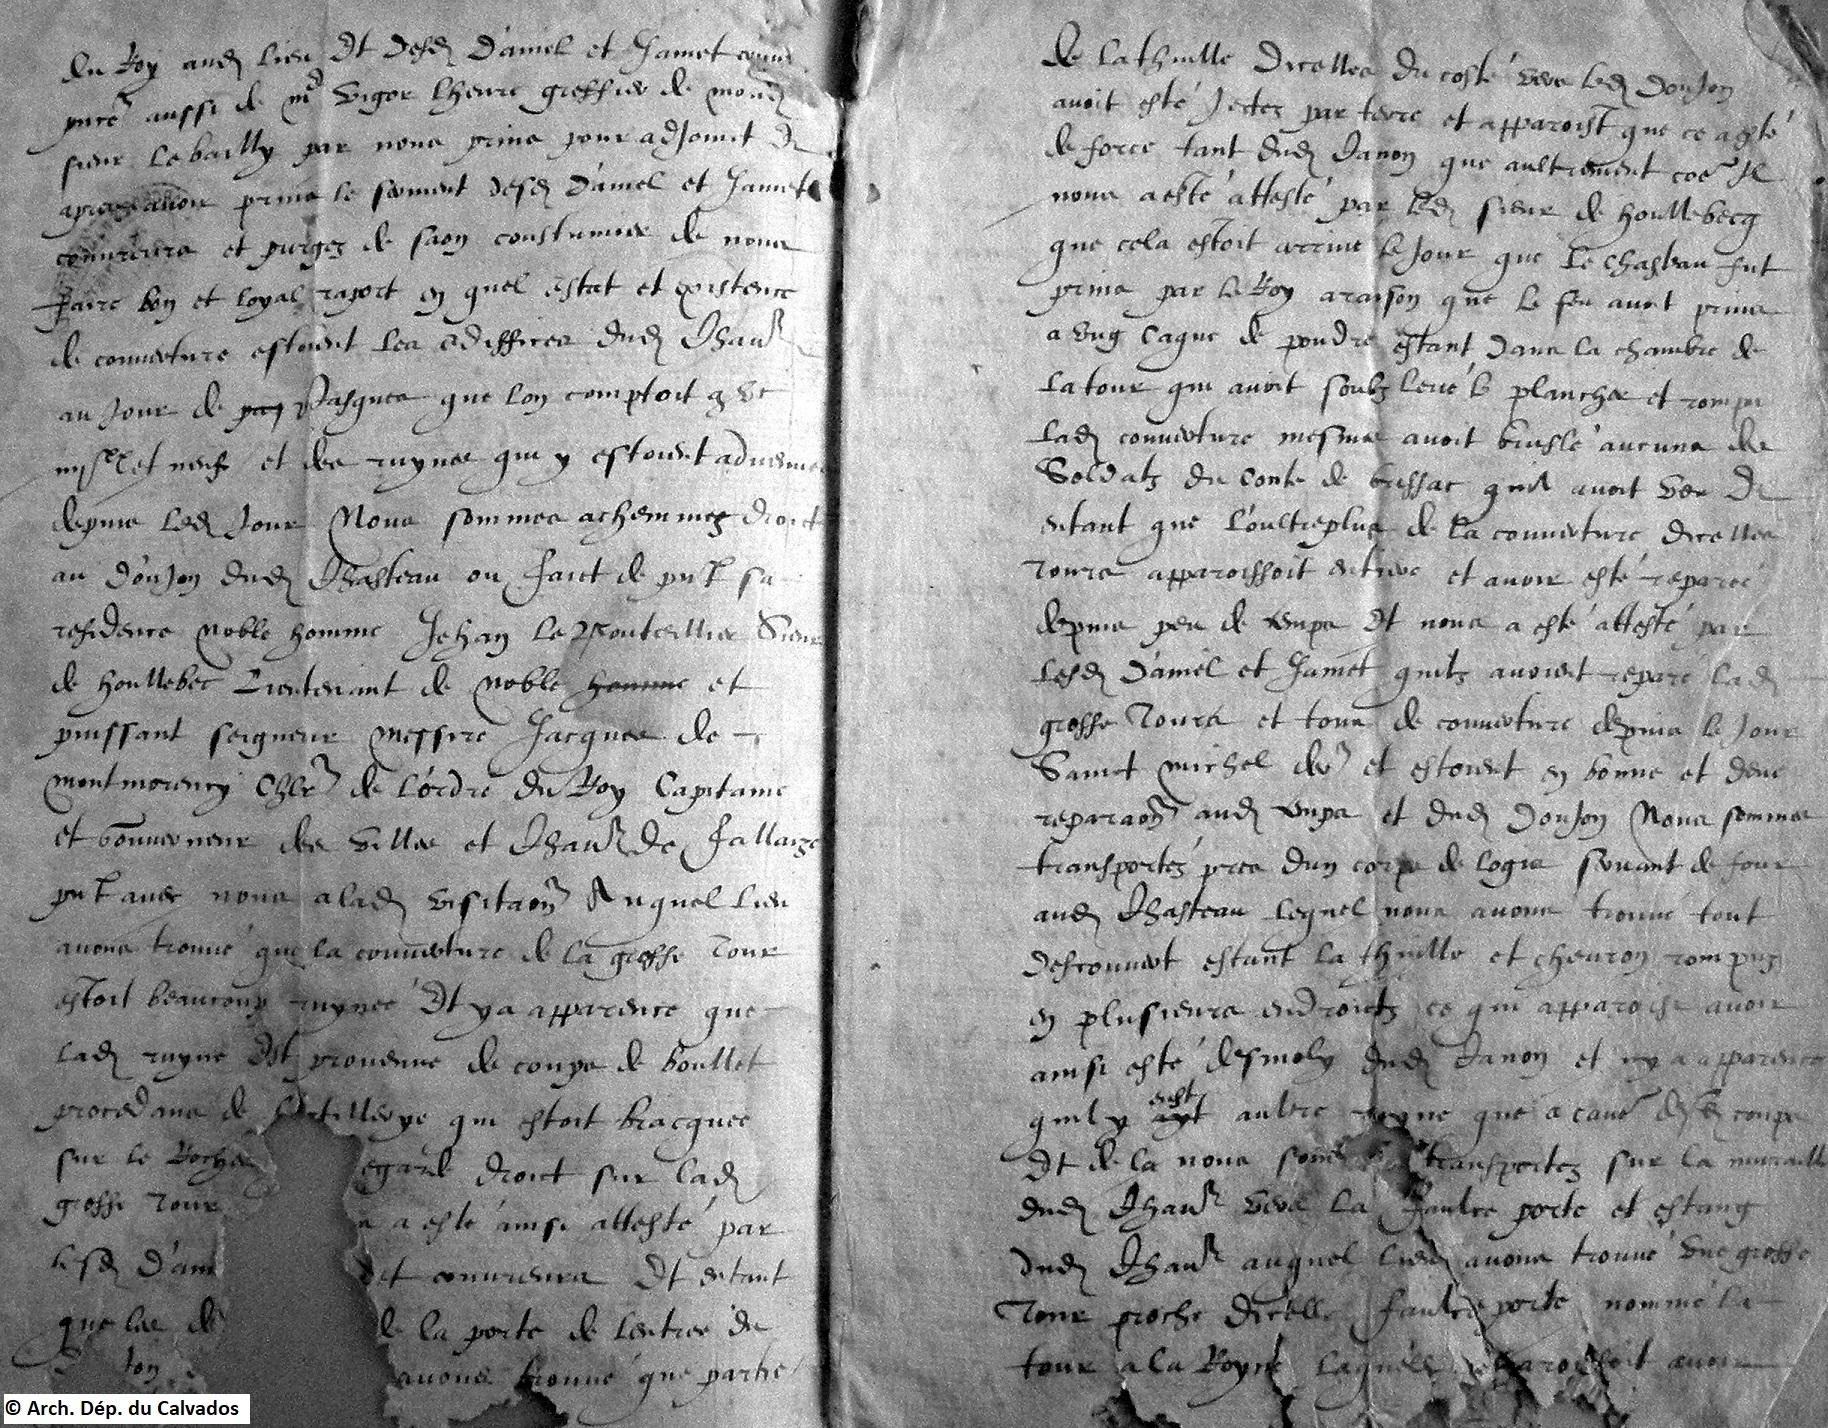 du Roy aud lieu Et desd Daniel et Jamet
aussi de me Vigor Lheure greffier de mond
sieur le bailly par nous prins pour adjoinct Et
apres avoir prins le serment desd Daniel et Jamet
couvreurs et purgez de saon coustumier de nous
faire bon et loyal raport en quel estat et existence
de couverture estoient les ediffices dud Chau
au jour de Pasques que lon comptoit
et neuf et des ruynes qui y estoient advenues
depuis led jour Nous sommes acheminez droict
au donjon dud Chasteau ou faict de pnt sa
residence noble homme Jehan Le Sieur
de Houllebec Lieutenant de noble homme et
puissant seigneur messire Jacques de
montmorency Chlr de lordre du Roy Capitaine
et Gouverneur des Villes et Chau de Fallaize
pnt avec nous a lad visitaon Auquel lieu
avons trouve que la couverture de la grosse Tour
estoit beaucoup ruynee Et y a apparence que
lad ruyne Est provenue de coups de boullet
procedans de lartillerye qui estoit bracquee
sur le Rocher egarde droict sur lad
grosse Tour a este ainsi atteste par
lesd Dani et couvreurs Et entant
que les de la porte de lentree du
jon avons trouve que partie
de la thuille dicelles du coste vers led donjon
avoit este jectez par terre et apparoist que ce a este
de force tant dud Canon que aultrement coe Il
nous a este atteste par led sieur de houllebecq
que cela estoit arrive le jour que le chasteau fut
prins par le Roy a raison que le feu avoit prins
a ung Cague de poudre estant dans la chambre de
la tour qui avoit soubz leve le plancher et rompu
lad couverture mesmes avoit brusle aucuns des
Soldatz du Conte de brissac quil avoit veu Et
entant que loultreplus de la couverture dicelles
Tours apparoissoit entiere et avoir este reparee
depuis peu de temps Et nous a este atteste par
lesd Daniel et Jamet quilz avoient repare lad
grosse Tours et tour de couverture depuis le jour
Sainct Michel der et estoient en bonne et deue
reparaon aud temps et dud donjon Nous sommes
transportez pres dun corps de logis servant de four
aud Chasteau lequel nous avons trouve tout
descouvert estant la thuille et chevron rompus
en plusieurs endroictz ce qui apparoist avoir
ainsi este desmoly dud Canon et ny a apparence
quil y eust aultre ruyne que a cause desd coups
Et de la nous sommes transportez sur la muraille
dud Chau vers la faulce porte et estang
dud Chau auquel lieu avons trouve une grosse
Tour proche dicelle faulce porte nomme la
tour a la Royne laquelle apparoissoit avoir
© Arch. Dép. du Calvados